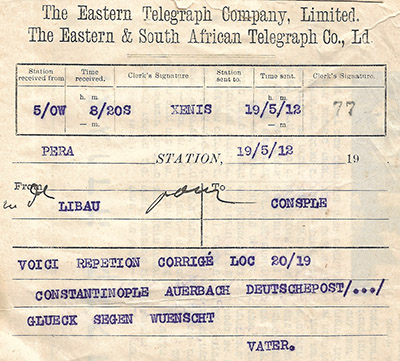 The Eastern Telegraph Company, Limited.
The Eastern & South African Telegraph Co., Ld
Station received from Time received. Clerk's Signature Station sent to. Time sent. Clerk's Signature.
h. m. h. m.
5/OW 8/20S XENIS 19/5/12 77
— m. — m.
PERA STATION, 19/5/12 19
From de pour To
LIBAU CONSPLE
VOICI REPETION CORRIGÉ LOC 20/19
CONSTANTINOPLE AUERBACH DEUTSCHEPOST/.../
GLUECK SEGEN WUENSCHT
VATER.